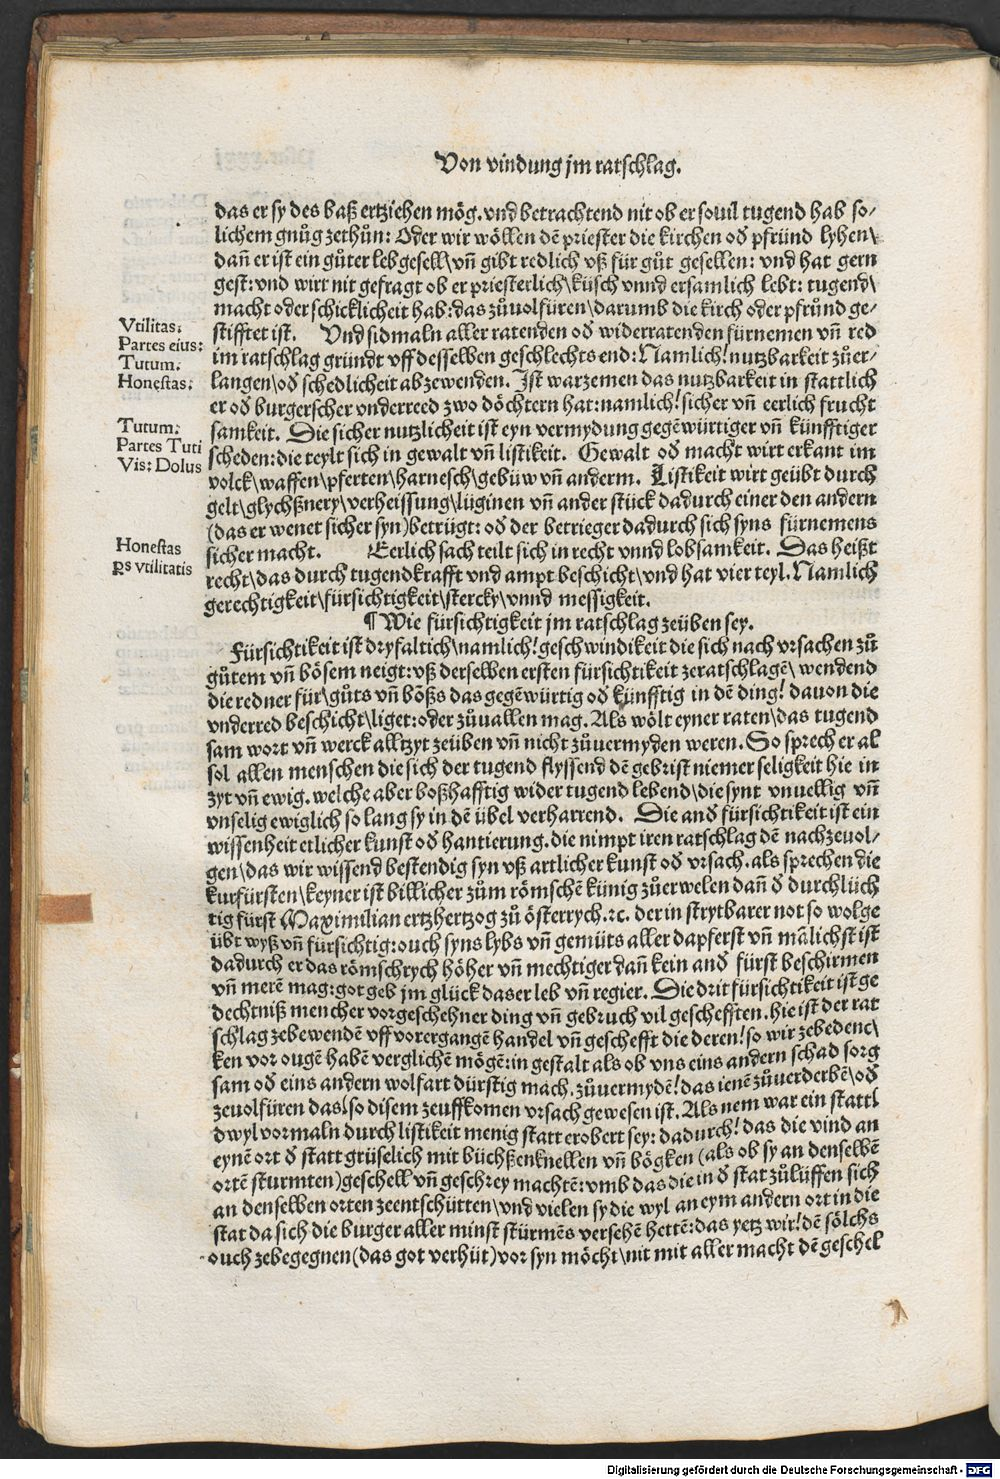 Von vindung jm ratschlag.
das er sy des baß ertziehen mög. vnd betrachtend nit ob er souil tugend hab so⸗
lichem gnůg zethůn: Oder wir wöllen dē priester die kirchen oď pfründ lyhen\
dañ er ist ein gůter lebgesell\ vñ gibt redlich vß für gůt gesellen: vnd hat gern
gest: vnd wirt nit gefragt ob er priesterlich\ küsch vnnd ersamlich lebt: tugend\
macht oder schicklicheit hab: das zůuolfüren\ darumb die kirch oder pfrůnd ge⸗
Vtilitas:
stifftet ist. Vnd sidmaln aller ratenden oď widerratenden fürnemen vñ red
Partes eius:
im ratschlag gründt vff desselben geschlechts end: Namlich! nutzbarkeit zůer⸗
Tutum.
Honestas.
langen\ oď schedlicheit abzewenden. Ist warzemen das nutzbarkeit in stattlich
er oď burgerscher vnderreed zwo döchtern hat: namlich! sicher vñ eerlich frucht
Tutum.
samkeit. Die sicher nutzlicheit ist eyn vermydung gegēwürtiger vñ künfftiger
Partes Tuti
scheden: die teylt sich in gewalt vñ listikeit. Gewalt oď macht wirt erkant im
Vis: Dolus
volck\ waffen\ pferten\ harnesch\ gebüw vñ anderm. Listikeit wirt geübt durch
gelt\ glychßnery\ verheissung\ lüginen vñ ander stück dadurch einer den andern
(das er wenet sicher syn) betrügt: oď der betrieger dadurch sich syns fürnemens
Honestas
sicher macht. Eerlich sach teilt sich in recht vnnd lobsamkeit. Das heißt
ps vtilitatis
recht\ das durch tugendkrafft vnd ampt beschicht\ vnd hat vier teyl. Namlich
gerechtigkeit\ fürsichtigkeit\ stercky\ vnnd messigkeit.
¶ Wie fürsichtigkeit jm ratschlag zeüben sey.
Fürsichtikeit ist dryfaltich\ namlich! geschwindikeit die sich nach vrsachen zů
gůtem vñ bösem neigt: vß derselben ersten fürsichtikeit zeratschlagē\ wendend
die redner für\ gůts vñ bößs das gegēwürtig oď künfftig in dē ding! dauon die
vnderred beschicht\ liget: oder zůuallen mag. Als wölt eyner raten\ das tugend
sam wort vñ werck alltzyt zeüben vñ nicht zůuermyden weren. So sprech er al
sol allen menschen die sich der tugend flyssend dē gebrist niemer seligkeit hie in
zyt vñ ewig. welche aber boßhafftig wider tugend lebend\ die synt vnuellig vñ
vnselig ewiglich so lang sy in dē übel verharrend. Die anď fürsichtikeit ist ein
wissenheit etlicher kunst oď hantierung. die nimpt iren ratschlag dē nachzeuol⸗
gen\ das wir wissend bestendig syn vß artlicher kunst oď vrsach. als sprechen die
kurfürsten\ keyner ist billicher zům römschē künig zůerwelen dann ď durchlüch
tig fürst Maximilian ertzhertzog zů österrych. ꝛc. der in strytbarer not so wolge
übt wyß vñ fürsichtig: ouch syns lybs vñ gemüts aller dapferst vñ mālichst ist
dadurch er das römschrych höher vñ mechtiger dañ kein anď fürst beschirmen
vñ merē mag: got geb jm glück das er leb vñ regier. Die drit fürsichtikeit ist ge
dechtniß mencher vorgeschehner ding vñ gebruch vil geschefften. hie ist der rat
schlag zebewendē vff vorergangē handel vñ geschefft die deren! so wir zebedenc\
ken vor ougē habē verglichē mögē: in gestalt als ob vns eins andern schad sorg
sam oď eins andern wolfart dürstig mach. zůuermydē! das ienē zůuerderbē\ oď
zeuolfüren das! so disem zeuffkomen vrsach gewesen ist. Als nem war ein statt!
dwyl vormaln durch listikeit menig statt erobert sey: dadurch! das die vind an
eynē ort ď statt grüselich mit büchßenknellen vñ bögken (als ob sy an denselbē
ortē sturmten) geschell vñ geschrey machtē: vmb das die in ď stat zůlüffen sich
an denselben orten zeentschütten\ vnd vielen sy die wyl an eym andern ort in die
stat da sich die burger aller minst stürmēs versehē hettē: das yetz wir! dē sölchs
ouch zebegegnen (das got verhüt) vor syn möcht\ nit mit aller macht dē geschel
Digitalisierung gefördert durch die Deutsche Forschungsgemeinschaft - DFG